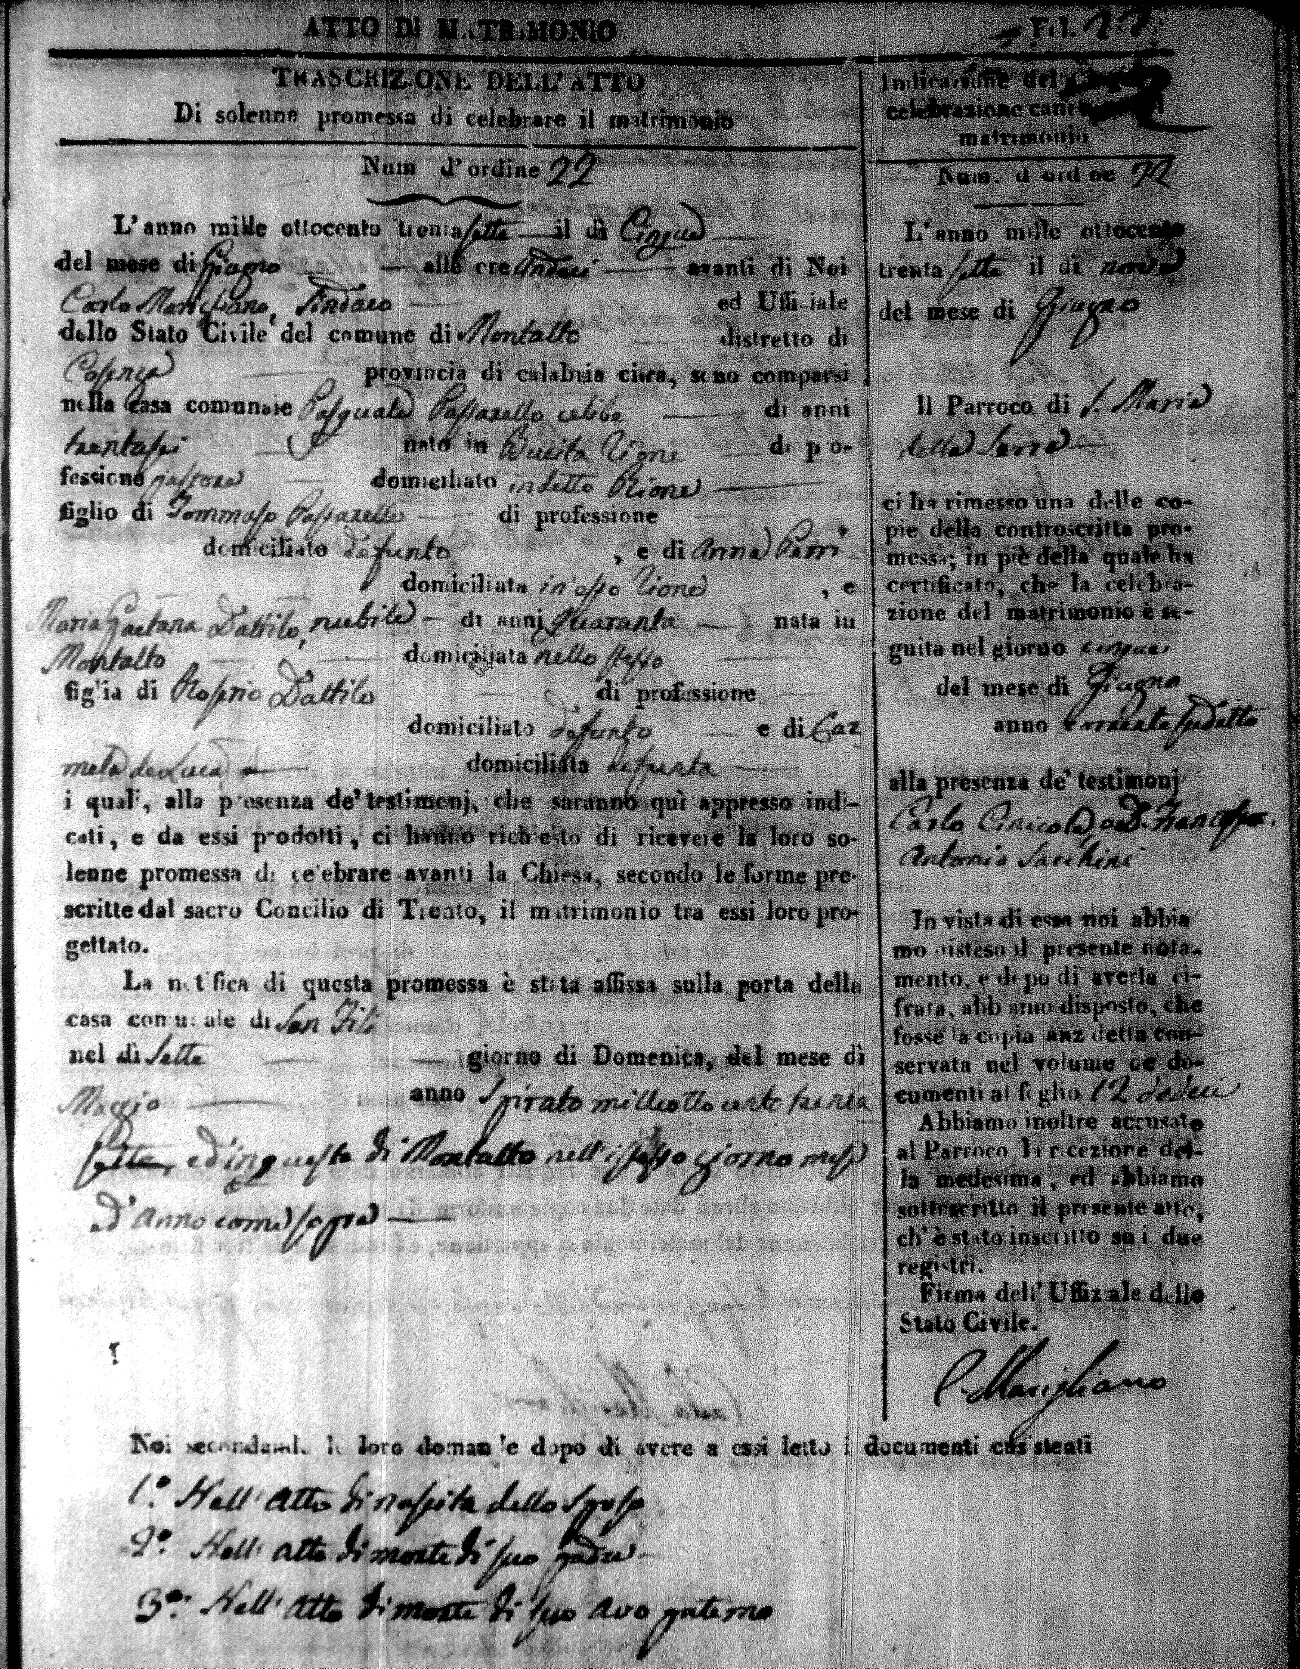 ATTO DI MATRIMONIO
Fol.
TRASCRIZIONE DELL' ATTO
Di solenne promessa di celebrare il matrimonio
Num d'ordine 22
L'anno mille ottocento trentasette il dì Cinque
del mese di Giugno alle ore undeci avanti di Noi
Carlo Marigliano, Sindaco ed Uffiziale
dello Stato Civile del comune di Montalto distretto di
Cosenza provincia di calabria citra, sono comparsi
nella casa comunale Pasquale Passarello celibe di anni
trentasei nato in Vigne di pro-
fessione pastore domiciliato in detto Rione
figlio di Tommaso Passarello di professione
domiciliato defunto, e di Anna
domiciliata in esso Rione, e
Maria Gaetana Dattilo, nubile di anni Quaranta nata in
Montalto domiciliata nello stesso
figlia di Rosario Dattilo di professione
domiciliato defunto e di Car
mela de Luca domiciliata defunta
i quali, alla presenza de' testimonj, che saranno quì appresso indi-
cati, e da essi prodotti, ci hanno richiesto di ricevere la loro so-
lenne promessa di celebrare avanti la Chiesa, secondo le forme pre-
scritte dal sacro Concilio di Trento, il matrimonio tra essi loro pro-
gettato.
La notifica di questa promessa è stata affissa sulla porta della
casa comunale di San Fili
nel dì Sette giorno di Domenica, del mese di
Maggio anno Spirato milleottocento trenta
sette, ed in questa di Montalto nell'istesso giorno mese
d'anno come sopra
Indicazione della
celebrazione canonica del
matrimonio
Num. d'ordine 22
L'anno mille ottocento
trenta sette il di nove
del mese di Giugno
Il Parroco di S. Maria
della Serra
ci ha rimesso una delle co-
pie della controscritta pro-
messa; in piè della quale ha
certificato, che la celebra-
zione del matrimonio è se-
guita nel giorno cinque
del mese di Giugno
anno corrente sudetto
alla presenza de' testimonj
Carlo
Antonio Sacchini
In vista di essa noi abbia
mo disteso il presente nota-
mento, e dopo di averla ci-
frata, abbiamo disposto, che
fosse la copia anzidetta con-
servata nel volume de' do-
cumenti al foglio 12 dodeci
Abbiamo inoltre accusato
al Parroco la ricezione del-
la medesima, ed abbiamo
sottoscritto il presente atto,
ch' è stato inscritto su i due
registri.
Firma dell' Uffiziale dello
Stato Civile.
C. Marigliano
Noi secondando le loro domande dopo di avere a essi letto i documenti consistenti
1.° Nell' atto di nascita dello Sposo
2.° Nell' atto di morte di suo padre
3.° Nell' atto di morte di suo avo paterno